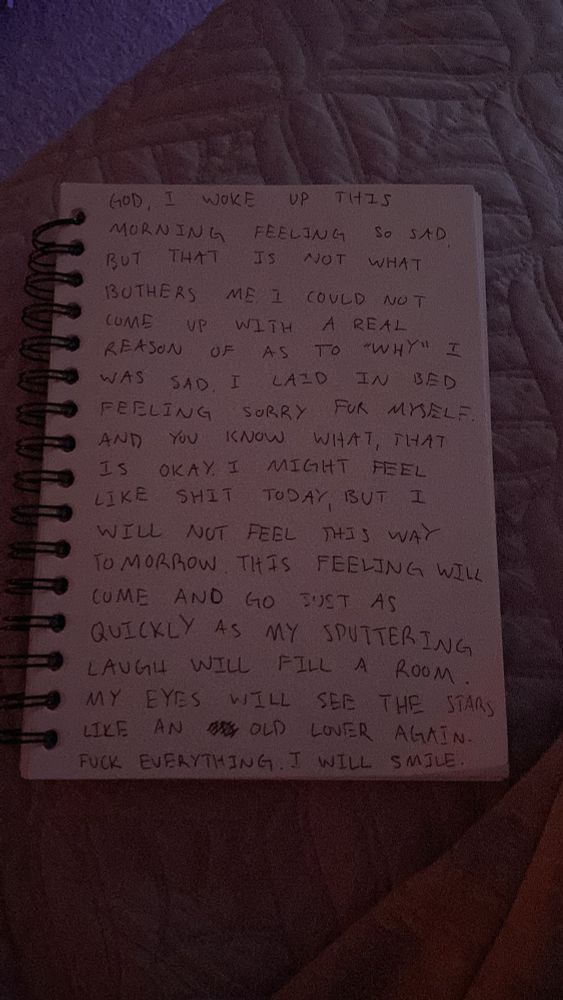 GOD, I WOKE UP THIS
MORNING FEELING SO SAD.
BUT THAT IS NOT WHAT
BOTHERS ME. I COULD NOT
COME UP WITH A REAL
REASON OF AS TO "WHY" I
WAS SAD. I LAID IN BED
FEELING SORRY FOR MYSELF.
AND YOU KNOW WHAT, THAT
IS OKAY. I MIGHT FEEL
LIKE SHIT TODAY, BUT I
WILL NOT FEEL THIS WAY
TOMORROW. THIS FEELING WILL
COME AND GO JUST AS
QUICKLY AS MY SPUTTERING
LAUGH WILL FILL A ROOM.
MY EYES WILL SEE THE STARS
LIKE AN OLD LOVER AGAIN.
FUCK EVERYTHING. I WILL SMILE.